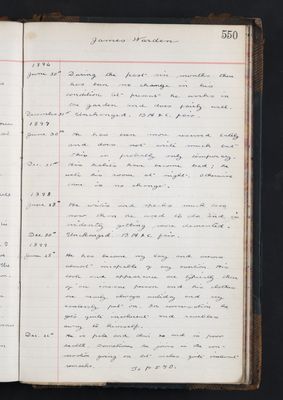 550
James Warden
1896
June 30th During the past six months there
has been no change in his
condition. At present he works in
the garden and does fairly well.
December 31st Unchanged. B.H.&C. fair.
1897
June 30th He has been more reserved lately
and does not write much but
this is probably only temporary.
Dec. 31st His habits have become bad; he
wets his room at night. Otherwise
there is no change.
1898
June 28th He writes and speaks much less
now than he used to do and is
evidently getting more demented.
Dec 30th Unchanged. B.H.&C. fair.
1899
June 28th He has become very lazy and seems
almost incapable of any exertion. His
look and appearance are typically those
of an insane person and his clothes
are nearly always untidy and very
carelessly put on. In conversation he
gets quite incoherent and rambles
away to himself.
Dec. He is pale and thin and in poor
health. Sometimes he joins in the con-
versation going on but makes quite irrelevant
remarks. To P 570.